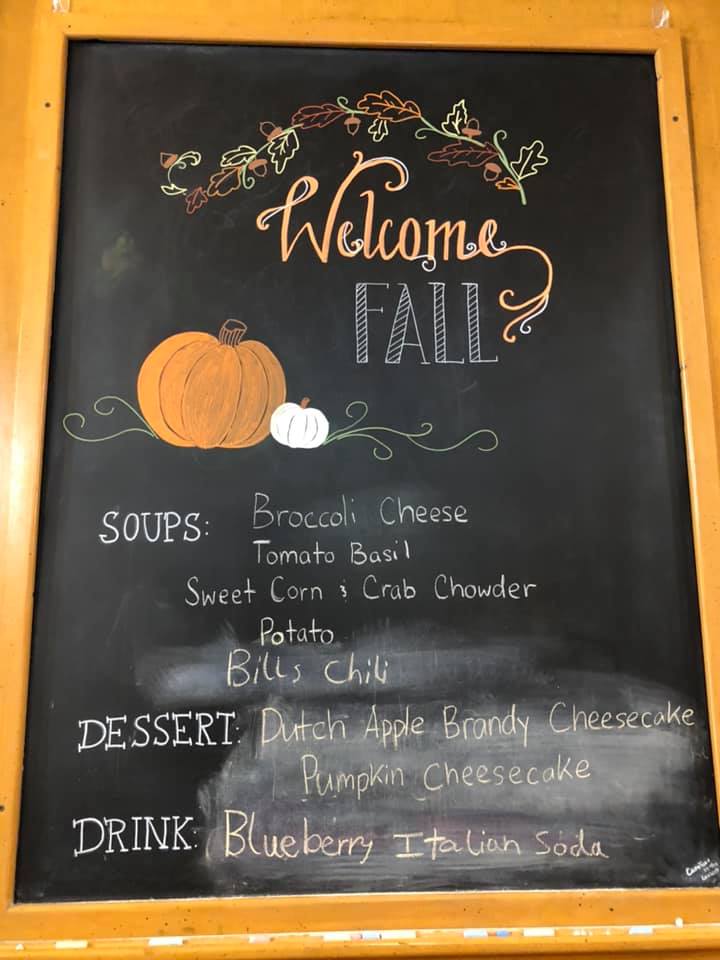 Welcome
FALL
SOUPS: Broccoli Cheese
Tomato Basil
Sweet Corn & Crab Chowder
Potato
Bills Chili
DESSERT: Dutch Apple Brandy Cheesecake
Pumpkin Cheesecake
DRINK: Blueberry Italian Soda